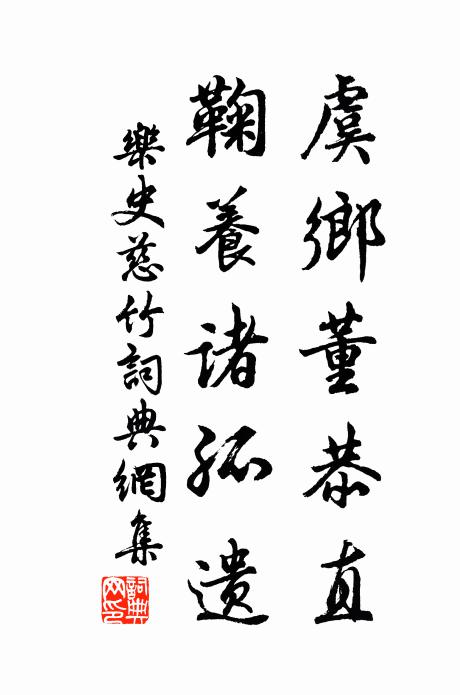 虞鄉董恭直
鞠養诸孤遗
樂史慈竹詞典網集
詞典網印